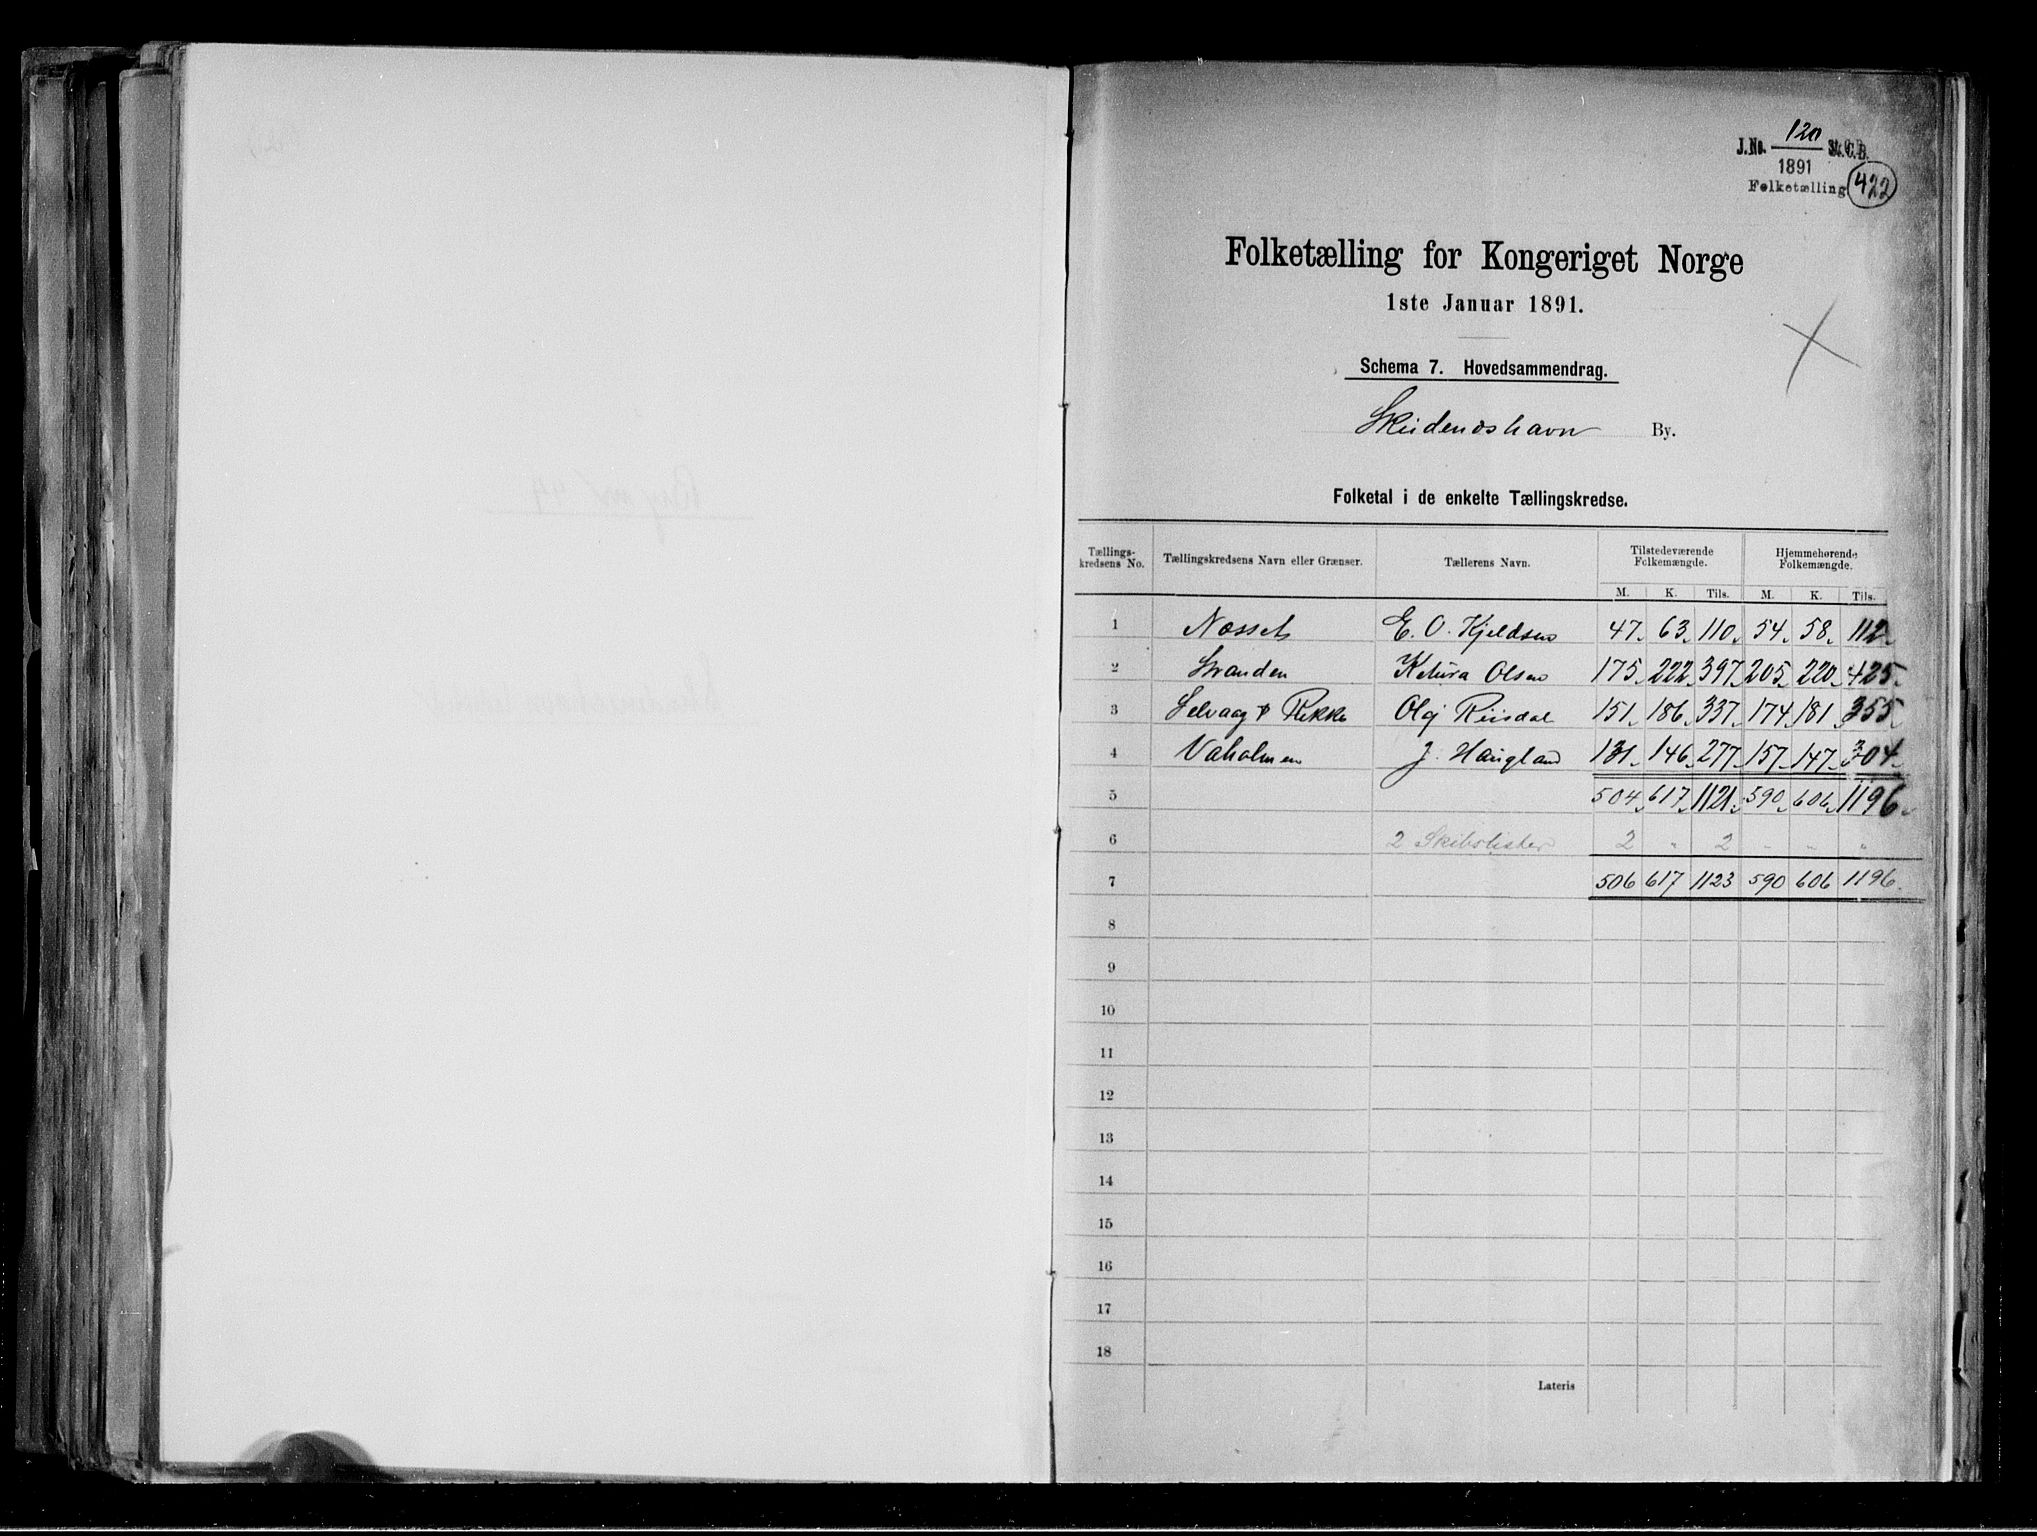 J.No. 120 St. C.B.
1891
Folketælling 422
Folketælling for Kongeriget Norge
1ste Januar 1891.
Schema 7. Hovedsammendrag.
Skudeneshavn By.
Folketal i de enkelte Tællingskredse.
Tællings-kredsens No. Tællingskredsens Navn eller Grænser. Tællerens Navn. Tilstedeværende Folkemængde. Hjemmehørende Folkemængde.
M. K. Tils. M. K. Tils.
1 Næsset E. O. Kjeldsen 47 63 110 54 58 112
2 Stranden Ketura Olsen 175 222 397 205 220 425
3 Selvaag & Rekke Olaj Risdal 151 186 337 174 181 355
4 Vaholmen J. Haugland 131 146 277 157 147 304
5 504 617 1121 590 606 1196
6 2 Skibslister 2 " 2 " " "
7 506 617 1123 590 606 1196
8
9
10
11
12
13
14
15
16
17
18
Lateris